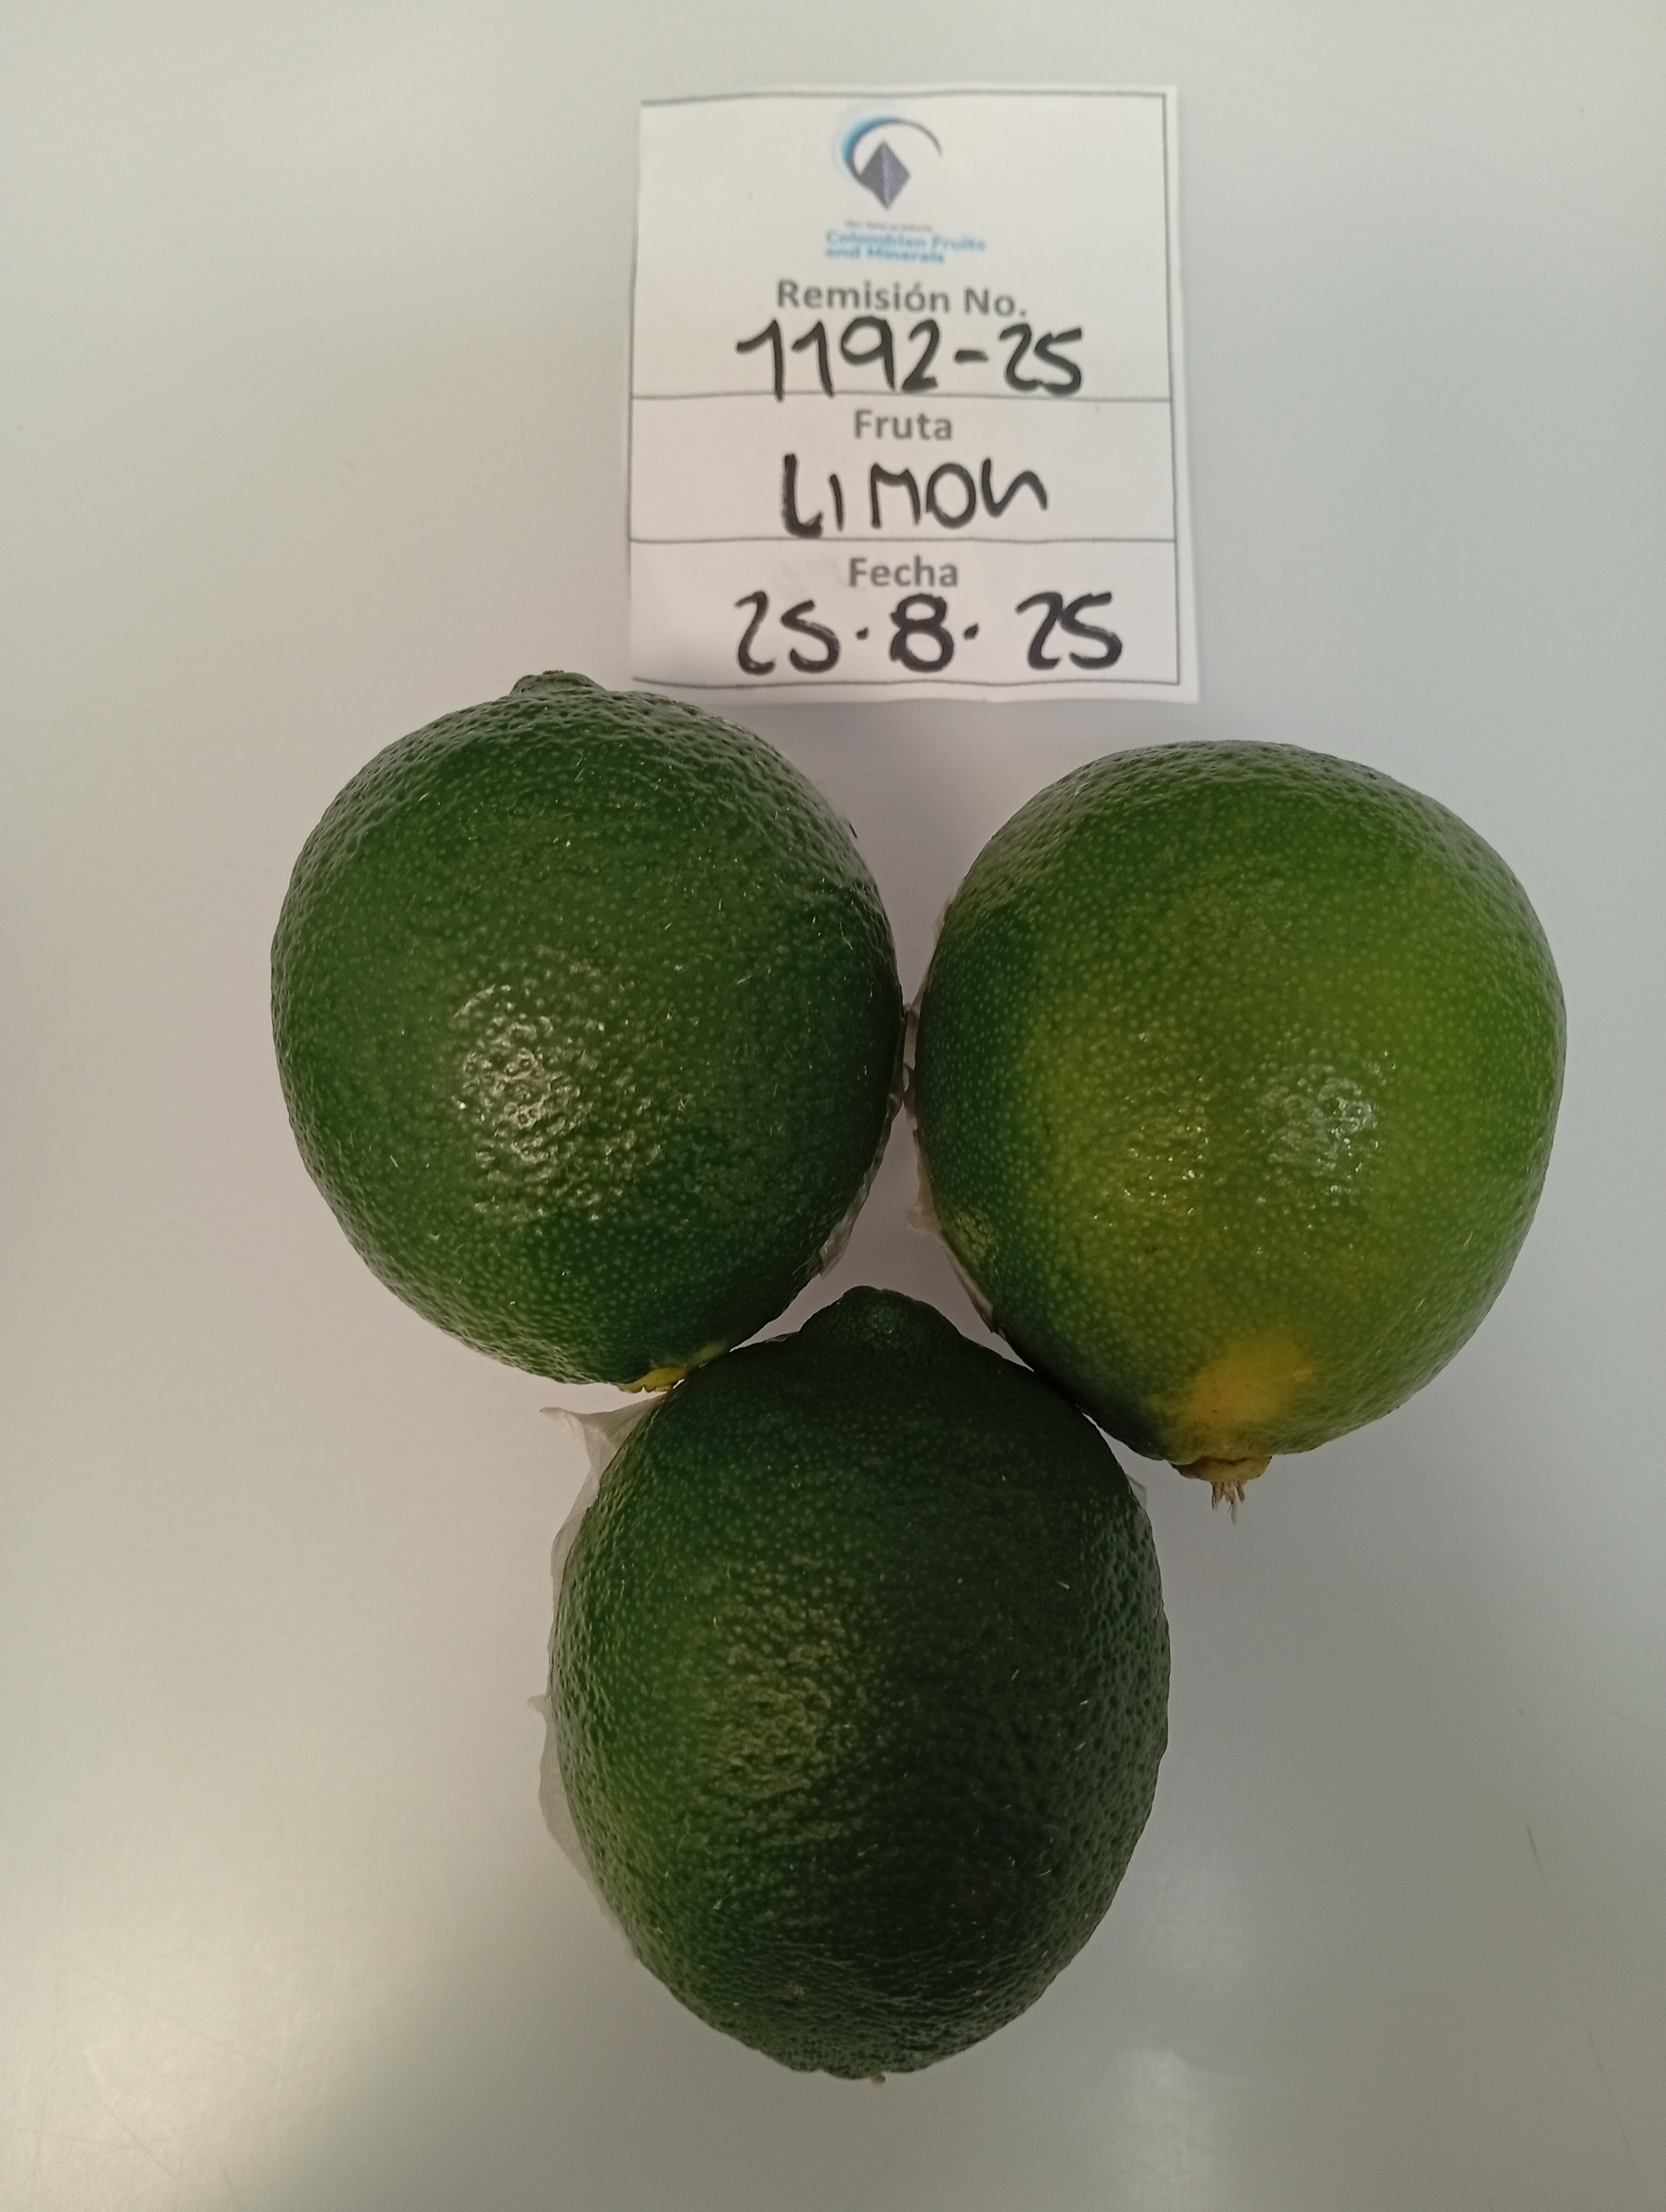 Colombian Fruits
and Minerals
Remisión No.
1192-25
Fruta
LIMON
Fecha
25·8·25